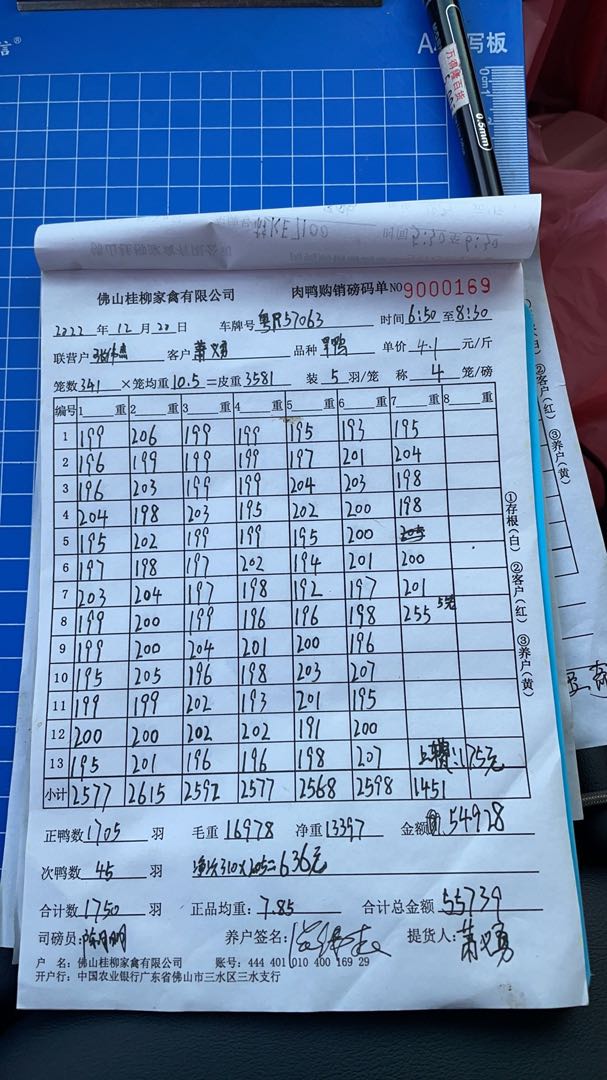 写板
0cm 1
五湖四海百货
0.5mm
佛山桂柳家禽有限公司 肉鸭购销磅码单 NO 9000169
2022 年 12 月 20 日 车牌号 粤R57063 时间 6:50 至 8:30
联营户 客户 萧义勇 品种 单价 4.1 元/斤
笼数 341 ×笼均重 10.5 =皮重 3581 装 5 羽/笼 称 4 笼/磅
编号 1 重 2 重 3 重 4 重 5 重 6 重 7 重 8 重
1 199 206 199 199 195 193 195
2 196 199 199 199 197 201 204
3 196 203 199 199 204 203 198
4 204 198 203 195 202 200 198
5 195 202 199 199 195 200
6 197 198 197 202 194 201 200
7 203 204 197 198 192 197 201
8 199 200 199 196 196 198 255 5笼
9 199 200 204 201 200 196
10 195 205 196 198 203 207
11 199 199 202 193 201 195
12 200 200 202 202 191 200
13 195 201 196 196 198 207 175元
小计 2577 2615 2592 2577 2568 2598 1451
正鸭数 1705 羽 毛重 16978 净重 13397 金额 54928
次鸭数 45 羽 310×2.05=636元
合计数 1750 羽 正品均重: 7.85 合计总金额 55739
司磅员: 养户签名: 提货人: 萧义勇
户 名: 佛山桂柳家禽有限公司 账号: 444 401 010 400 169 29
开户行: 中国农业银行广东省佛山市三水区三水支行
①存根(白) ②客户(红) ③养户(黄)
②客户(红) ③养户(黄)